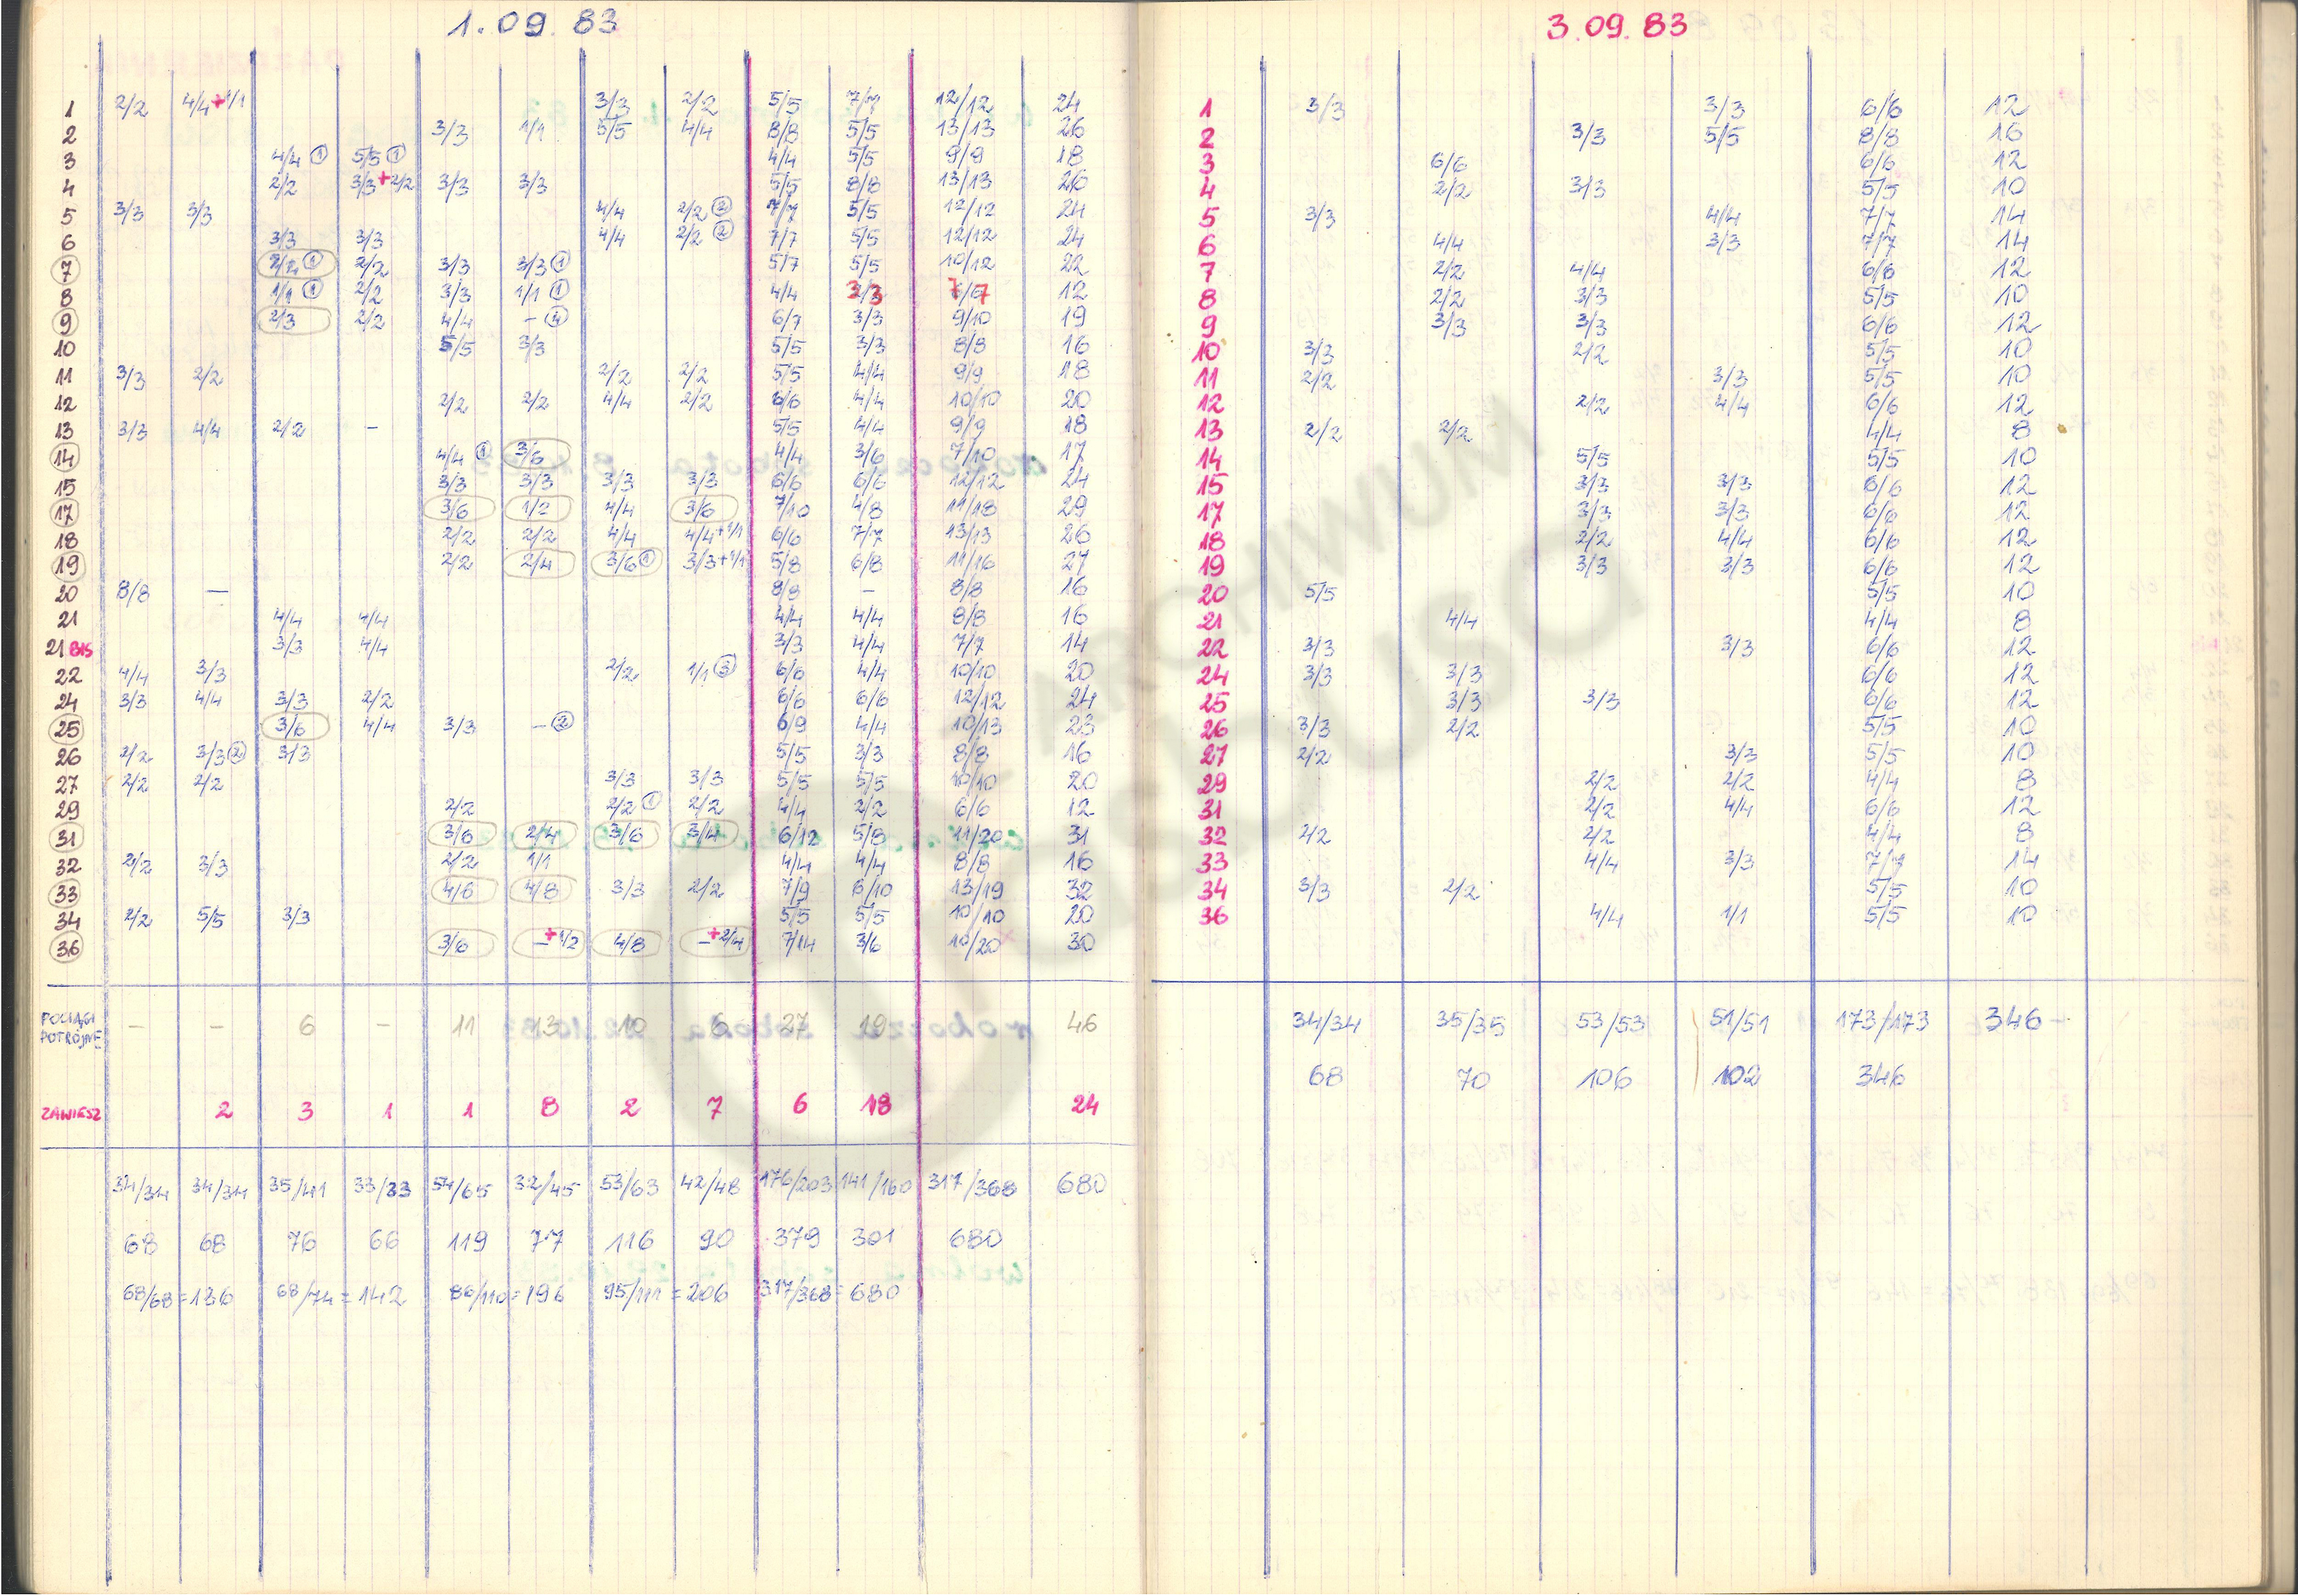 1.09.83
1 2/2 4/4+1/1 3/3 2/2 5/5 7/7 12/12 24
2 3/3 1/1 5/5 4/4 8/8 5/5 13/13 26
3 4/4 ① 5/5 ① 4/4 5/5 9/9 18
4 2/2 3/3+2/2 3/3 3/3 5/5 8/8 13/13 26
5 3/3 3/3 4/4 2/2 ② 7/7 5/5 12/12 24
6 3/3 3/3 4/4 2/2 ② 7/7 5/5 12/12 24
7 2/2 ① 2/2 3/3 3/3 ① 5/7 5/5 10/12 22
8 1/1 ① 2/2 3/3 1/1 ① 4/4 3/3 7/7 12
9 2/3 2/2 4/4 - ④ 6/7 3/3 9/10 19
10 5/5 3/3 5/5 3/3 8/8 16
11 3/3 2/2 2/2 2/2 5/5 4/4 9/9 18
12 2/2 2/2 4/4 2/2 6/6 4/4 10/10 20
13 3/3 4/4 2/2 - 5/5 4/4 9/9 18
14 4/4 ① 3/6 4/4 3/6 7/10 17
15 3/3 3/3 3/3 3/3 6/6 6/6 12/12 24
17 3/6 1/2 4/4 3/6 7/10 4/8 11/18 29
18 2/2 2/2 4/4 4/4+1/1 6/6 7/7 13/13 26
19 2/2 2/4 3/6 ① 3/3+1/1 5/8 6/8 11/16 27
20 8/8 - 8/8 - 8/8 16
21 4/4 4/4 4/4 4/4 8/8 16
21 BIS 3/3 4/4 3/3 4/4 7/7 14
22 4/4 3/3 2/2 1/1 ③ 6/6 4/4 10/10 20
24 3/3 4/4 3/3 2/2 6/6 6/6 12/12 24
25 3/6 4/4 3/3 - ② 6/9 4/4 10/13 23
26 2/2 3/3 ② 3/3 5/5 3/3 8/8 16
27 2/2 2/2 3/3 3/3 5/5 5/5 10/10 20
29 2/2 2/2 ① 2/2 4/4 2/2 6/6 12
31 3/6 2/4 3/6 3/4 6/12 5/8 11/20 31
32 2/2 3/3 2/2 1/1 4/4 4/4 8/8 16
33 4/6 4/8 3/3 2/2 7/9 6/10 13/19 32
34 2/2 5/5 3/3 5/5 5/5 10/10 20
36 3/6 -+1/2 4/8 -+2/4 7/14 3/6 10/20 30
POCIĄGI POTRÓJNE - - 6 - 11 13 10 6 27 19 46
ZAWIESZ 2 3 1 1 8 2 7 6 18 24
34/34 34/34 35/41 33/33 54/65 32/45 53/63 42/48 176/203 141/160 317/368 680
68 68 76 66 119 77 116 90 379 301 680
68/68=136 68/74=142 86/110=196 95/111=206 317/368=680
3.09.83
1 3/3 3/3 6/6 12
2 3/3 5/5 8/8 16
3 6/6 6/6 12
4 2/2 3/3 5/5 10
5 3/3 4/4 7/7 14
6 4/4 3/3 7/7 14
7 2/2 4/4 6/6 12
8 2/2 3/3 5/5 10
9 3/3 3/3 6/6 12
10 3/3 2/2 5/5 10
11 2/2 3/3 5/5 10
12 2/2 4/4 6/6 12
13 2/2 2/2 4/4 8
14 5/5 5/5 10
15 3/3 3/3 6/6 12
17 3/3 3/3 6/6 12
18 2/2 4/4 6/6 12
19 3/3 3/3 6/6 12
20 5/5 5/5 10
21 4/4 4/4 8
22 3/3 3/3 6/6 12
24 3/3 3/3 6/6 12
25 3/3 3/3 6/6 12
26 3/3 2/2 5/5 10
27 2/2 3/3 5/5 10
29 2/2 2/2 4/4 8
31 2/2 4/4 6/6 12
32 2/2 2/2 4/4 8
33 4/4 3/3 7/7 14
34 3/3 2/2 5/5 10
36 4/4 1/1 5/5 10
34/34 35/35 53/53 51/51 173/173 346-
68 70 106 102 346
ARCHIWUM